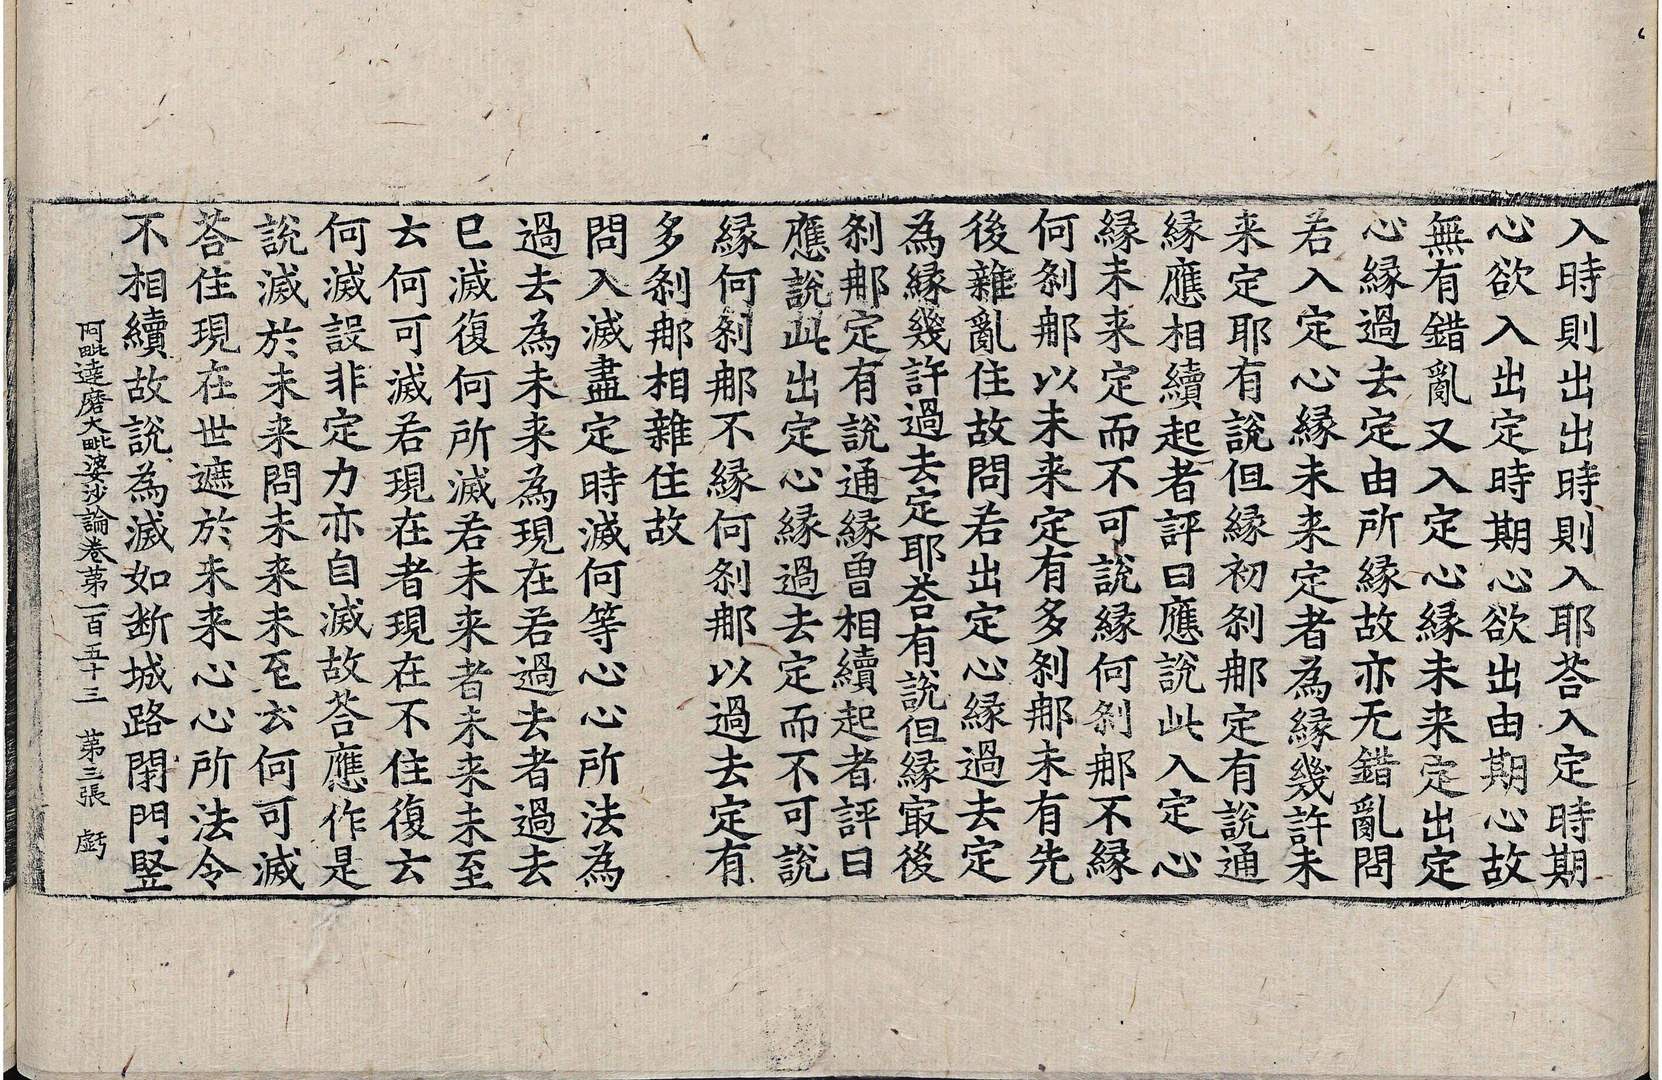 入時則出出時則入耶荅入定時期
心欲入出定時期心欲出由期心故
無有錯亂又入定心緣未来定出定
心緣過去定由所緣故亦无錯亂問
若入定心緣未来定者為緣幾許未
来定耶有說但緣初刹那定有說通
緣應相續起者評曰應說此入定心
緣未来定而不可說緣何刹那不緣
何刹那以未来定有多刹那未有先
後雜亂住故問若出定心緣過去定
為緣幾許過去定耶荅有說但緣㝡後
刹那定有說通緣曾相續起者評曰
應說此出定心緣過去定而不可說
緣何刹那不緣何刹那以過去定有
多刹那相雜住故
問入滅盡定時滅何等心心所法為
過去為未来為現在若過去者過去
已滅復何所滅若未来者未来未至
云何可滅若現在者現在不住復云
何滅設非定力亦自滅故荅應作是
說滅於未来問未来未至云何可滅
荅住現在世遮於未来心心所法令
不相續故說為滅如断城路閇門竪
阿毗達磨大毗婆沙論卷第一百五十三 第三張 虧